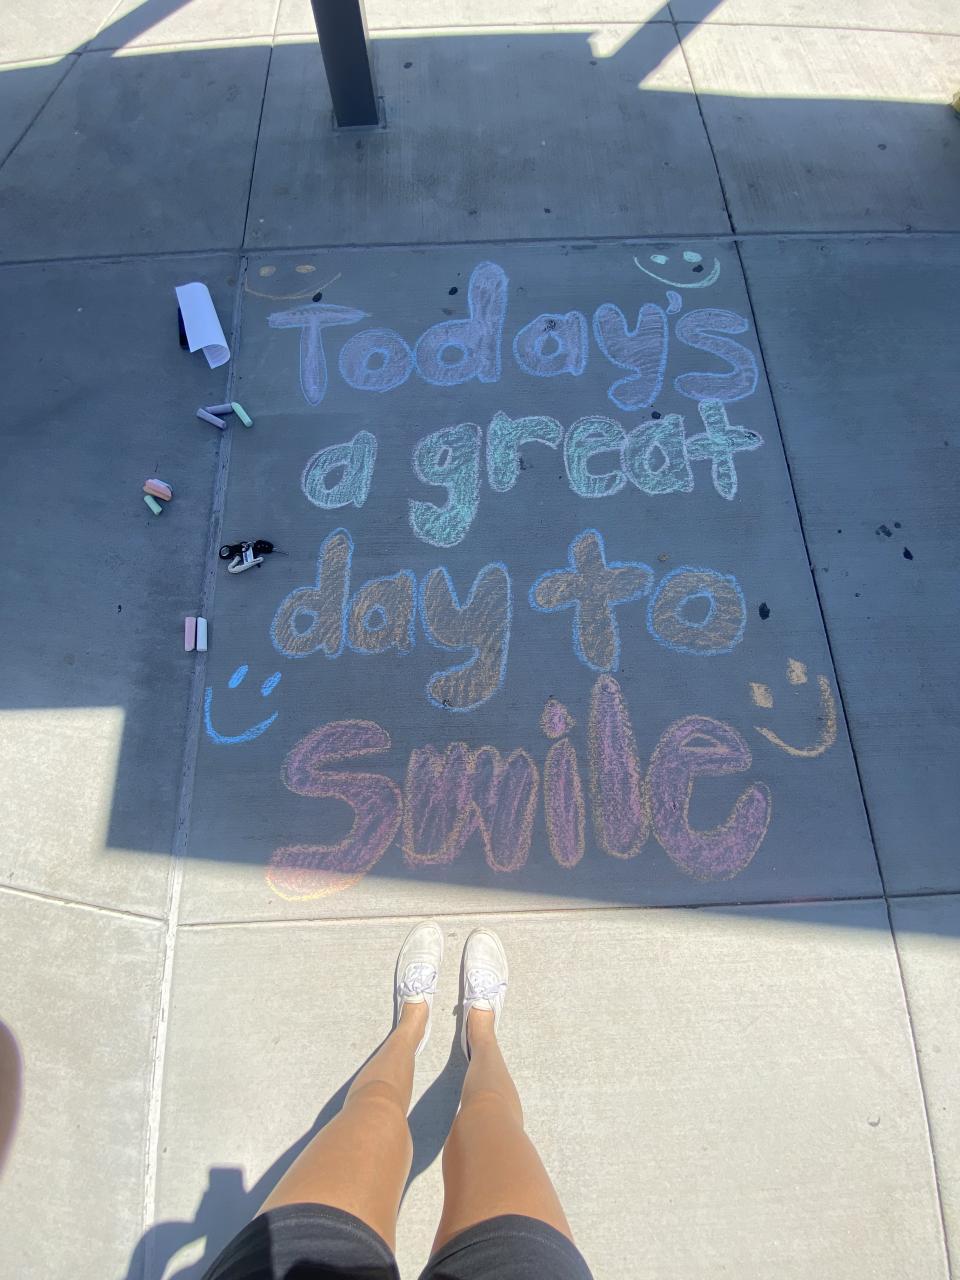 Today's
a great
day to
Smile